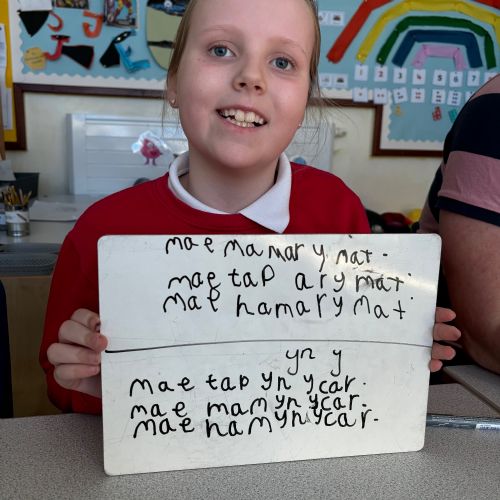 mae mam ar y mat.
mae tap ar y mat.
mae ham ar y mat
yn y
mae tap yn y car.
mae mam yn y car.
mae ham yn y car.
1 2 3 4 5 6 7